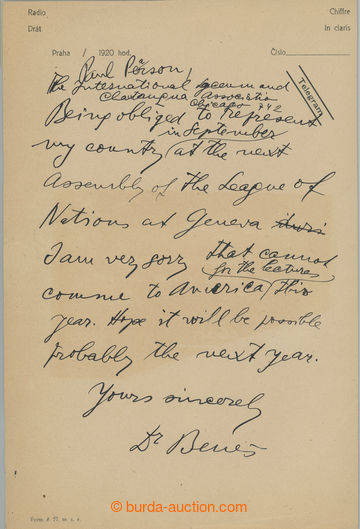 Radio Chiffre
Drát In claris
Praha / 1920 hod. Číslo
Telegram
Paul Pearson,
The International Lyceum and
Chautauqua Association
Chicago
Being obliged to represent
in September
my country at the next
Assembly of the League of
Nations at Geneva
I am very sorry that cannot
for the lectures
comme to America this
year. Hope it will be possible
probably the next year.
Yours sincerely
Dr Beneš
burda-auction.com